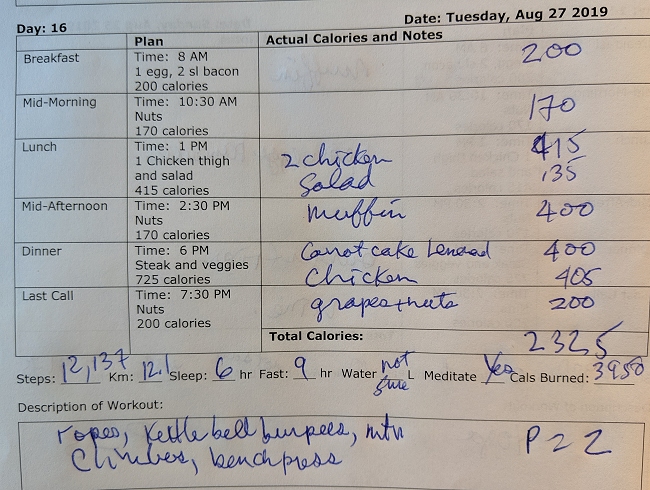 Date: Tuesday, Aug 27 2019
Day: 16
Plan Actual Calories and Notes
Breakfast Time: 8 AM 200
1 egg, 2 sl bacon
200 calories
Mid-Morning Time: 10:30 AM 170
Nuts
170 calories
Lunch Time: 1 PM 2 chicken 415
1 Chicken thigh
and salad Salad 135
415 calories
Mid-Afternoon Time: 2:30 PM muffin 400
Nuts
170 calories
Dinner Time: 6 PM Carrot cake 400
Steak and veggies Chicken 405
725 calories
Last Call Time: 7:30 PM grapes + nuts 200
Nuts
200 calories
Total Calories: 2325
Steps: 12,137 Km: 12.1 Sleep: 6 hr Fast: 9 hr Water not sure L Meditate Yes Cals Burned: 3950
Description of Workout:
ropes, Kettlebell burpees, mtn
Climbers, benchpress P22